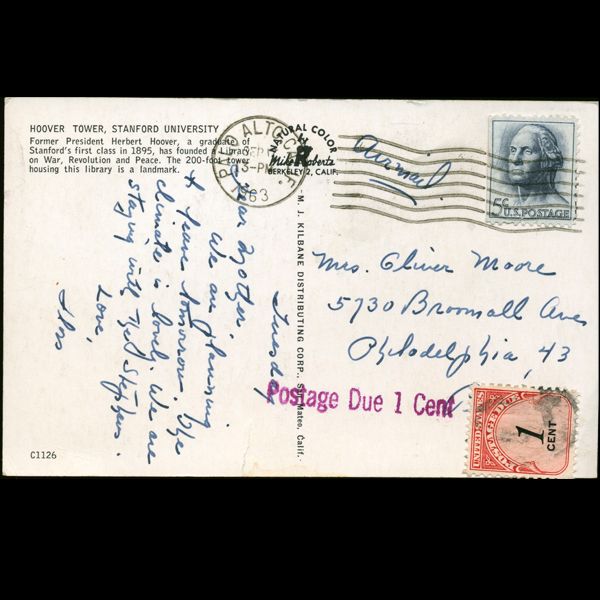 HOOVER TOWER, STANFORD UNIVERSITY
Former President Herbert Hoover, a graduate of
Stanford's first class in 1895, has founded a Library
on War, Revolution and Peace. The 200-foot tower
housing this library is a landmark.
ALTO
SEP
3-PM
1963
NATURAL COLOR
Mike Roberts
BERKELEY 2, CALIF.
Airmail
5¢ U.S. POSTAGE
M. J. KILBANE DISTRIBUTING CORP., San Mateo, Calif.
Tuesday
Dear Mother,
We are planning
to leave tomorrow. The
climate is lovely. We are
staying with the Stephens.
Love,
Mrs. Oliver Moore
5730 Broomall Ave
Philadelphia, 43
Postage Due 1 Cent
POSTAGE DUE
UNITED STATES
1
CENT
C1126